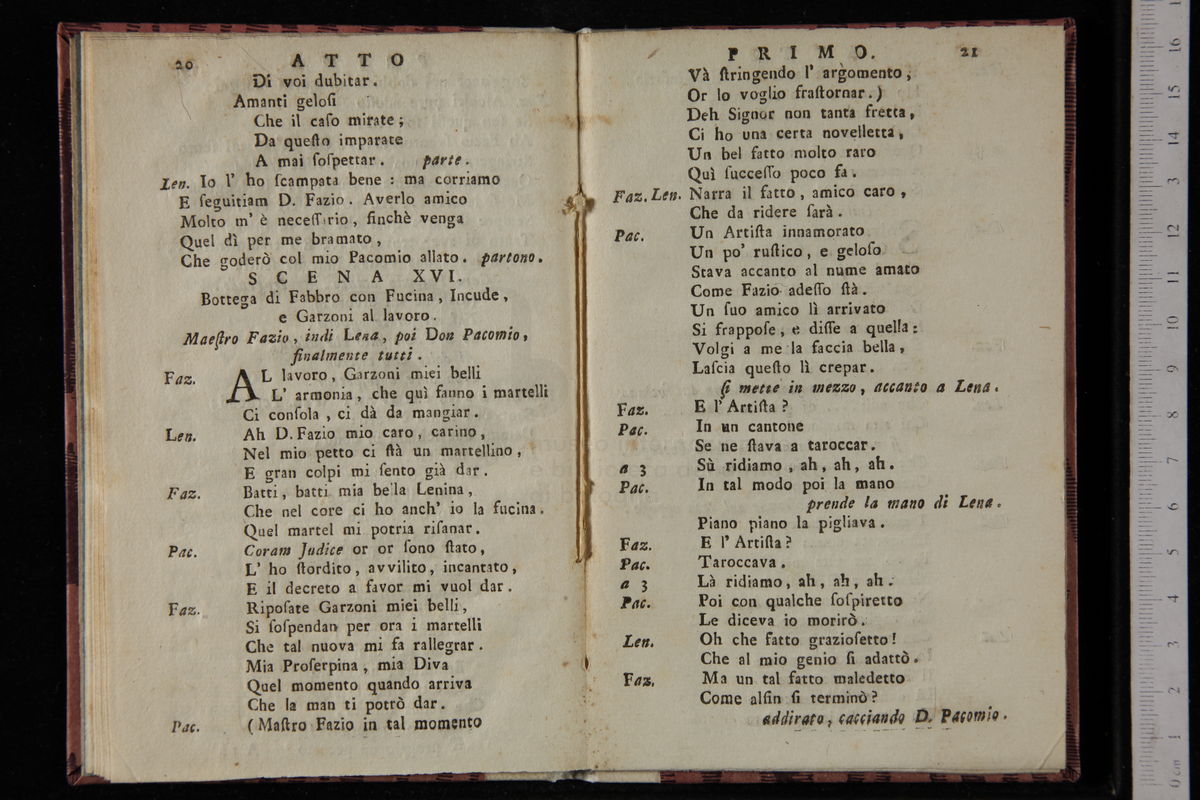 20 ATTO
Di voi dubitar.
Amanti geloſi
Che il caſo mirate;
Da queſto imparate
A mai ſoſpettar. parte.
Len. Io l' ho ſcampata bene : ma corriamo
E ſeguitiam D. Fazio. Averlo amico
Molto m' è neceſſ rio, finchè venga
Quel dì per me bramato,
Che goderò col mio Pacomio allato. partono.
SCENA XVI.
Bottega di Fabbro con Fucina, Incude,
e Garzoni al lavoro.
Maeſtro Fazio, indi Lena, poi Don Pacomio,
finalmente tutti.
Faz. AL lavoro, Garzoni miei belli
L' armonia, che quì fanno i martelli
Ci conſola, ci dà da mangiar.
Len. Ah D. Fazio mio caro, carino,
Nel mio petto ci ſtà un martellino,
E gran colpi mi ſento già dar.
Faz. Batti, batti mia be'la Lenina,
Che nel core ci ho anch' io la fucina.
Quel martel mi potria riſanar.
Pac. Coram Judice or or ſono ſtato,
L' ho ſtordito, avvilito, incantato,
E il decreto a favor mi vuol dar.
Faz. Ripoſate Garzoni miei belli,
Si ſoſpendan per ora i martelli
Che tal nuova mi fa rallegrar.
Mia Proſerpina, mia Diva
Quel momento quando arriva
Che la man ti potrò dar.
Pac. (Maſtro Fazio in tal momento
PRIMO. 21
Và ſtringendo l' argomento,
Or lo voglio fraſtornar.)
Deh Signor non tanta fretta,
Ci ho una certa novelletta,
Un bel fatto molto raro
Quì ſucceſſo poco fa.
Faz. Len. Narra il fatto, amico caro,
Che da ridere ſarà.
Pac. Un Artiſta innamorato
Un po' ruſtico, e geloſo
Stava accanto al nume amato
Come Fazio adeſſo ſtà.
Un ſuo amico lì arrivato
Si frappoſe, e diſſe a quella:
Volgi a me la faccia bella,
Laſcia queſto lì crepar.
ſi mette in mezzo, accanto a Lena.
Faz. E l' Artiſta?
Pac. In un cantone
Se ne ſtava a taroccar.
a 3 Sù ridiamo, ah, ah, ah.
Pac. In tal modo poi la mano
prende la mano di Lena.
Piano piano la pigliava.
Faz. E l' Artiſta?
Pac. Taroccava.
a 3 Là ridiamo, ah, ah, ah.
Pac. Poi con qualche ſoſpiretto
Le diceva io morirò.
Len. Oh che fatto grazioſetto!
Che al mio genio ſi adattò.
Faz. Ma un tal fatto maledetto
Come alfin ſi terminò?
addirato, cacciando D. Pacomio.
0 cm 1 2 3 4 5 6 7 8 9 10 11 12 13 14 15 16